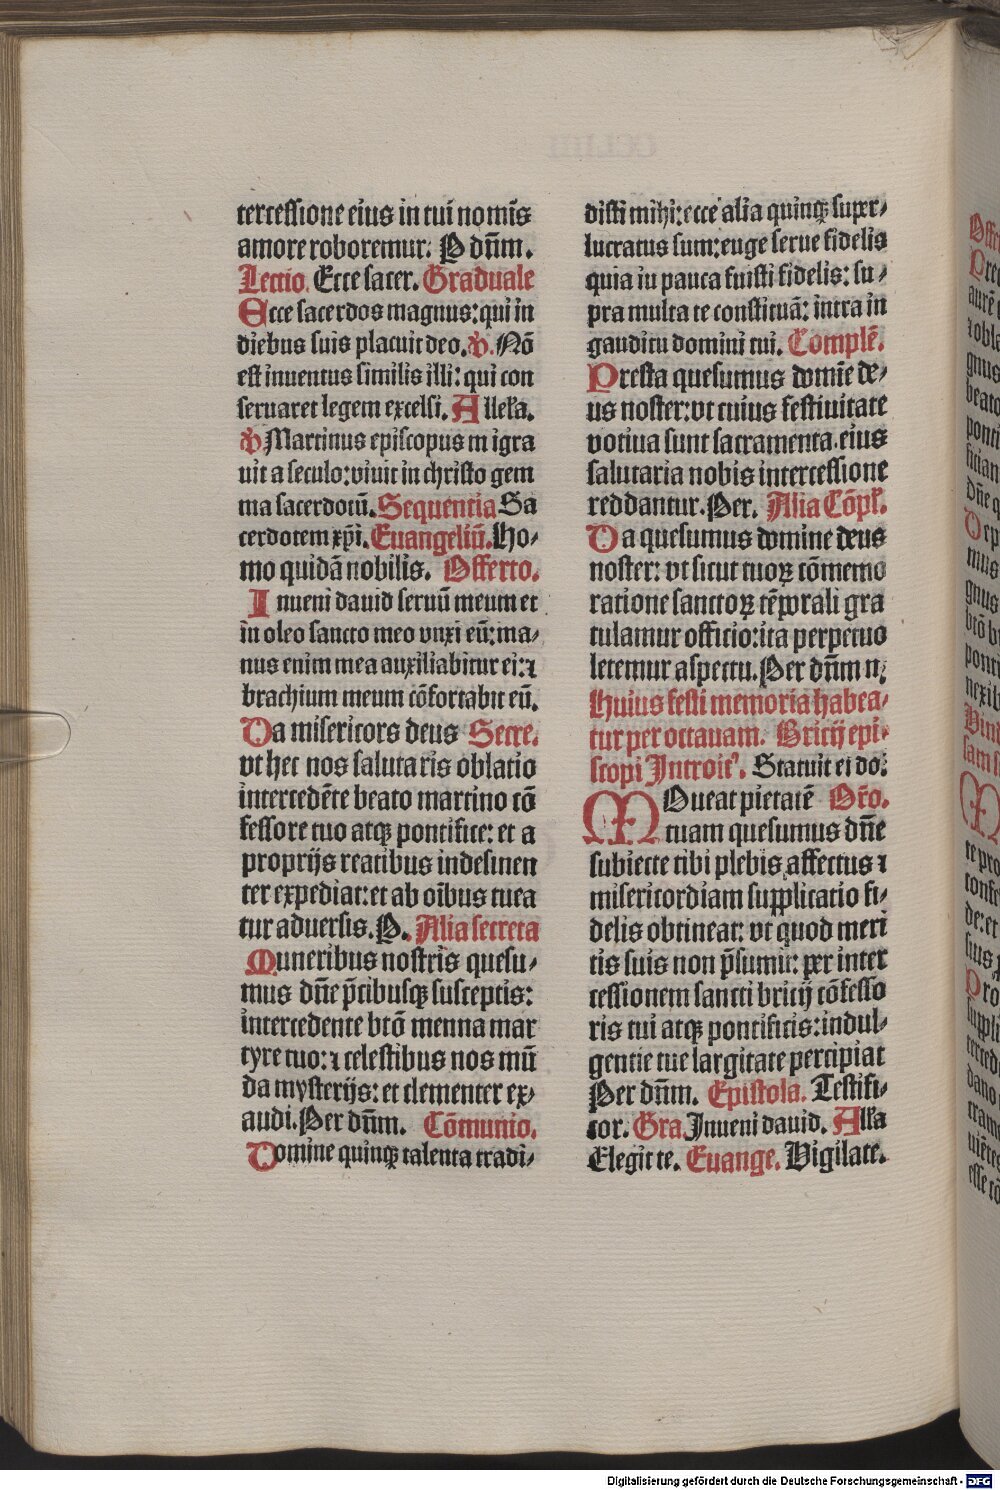 tercessione eius in tui nomīs
amore roboremur. P dn̄m.
Lectio. Ecce sacer. Graduale
Ecce sacerdos magnus: qui in
diebus suis placuit deo. ℣. Nō
est inuentus similis illi: qui con
seruaret legem excelsi. Allel'a.
℣ Martinus episcopus m igra
uit a seculo: viuit in christo gem
ma sacerdotū. Sequentia Sa
cerdotem xp̄i. Euangeliū. Ho⸗
mo quidā nobilis. Offerto.
Inueni dauid seruū meum et
in oleo sancto meo vnxi eū: ma⸗
nus enim mea auxiliabitur ei: ⁊
brachium meum cōfortabit eū.
Da misericors deus Secre.
vt hec nos salutaris oblatio
intercedēte beato martino cō
fessore tuo atqꝫ pontifice: et a
proprijs reatibus indesinen
ter expediat: et ab oībus tuea
tur aduersis. P. Alia secreta
Muneribus nostris quesu⸗
mus dn̄e p̄cibusqꝫ susceptis:
intercedente btō menna mar
tyre tuo: ⁊ celestibus nos mū
da mysterijs: et clementer ex⸗
audi. Per dn̄m. Cōmunio.
Domine quinqꝫ talenta tradi⸗
disti mihi: ecce alia quinqꝫ super⸗
lucratus sum: euge serue fidelis
quia iu pauca fuisti fidelis: su⸗
pra multa te constituā: intra in
gauditu domini tui. Complē.
Presta quesumus domīe de⸗
us noster: vt cuius festiuitate
votiua sunt sacramenta. eius
salutaria nobis intercessione
reddantur. Per. Alia Cōpl'.
Da quesumus domine deus
noster: vt sicut tuoꝝ cōmemo
ratione sanctoꝝ tēporali gra
tulamur officio: ita perpetuo
letemur aspectu. Per dn̄m n:
Huius festi memoria habea⸗
tur per octauam. Bricij epi⸗
scopi Introitꝰ. Statuit ei do:
MOueat pietatē Or̄o.
tuam quesumus dn̄e
subiecte tibi plebis affectus ⁊
misericordiam supplicatio fi⸗
delis obtineat: vt quod meri
tis suis non p̄sumit: per inter
cessionem sancti bricij cōfesso
ris tui atqꝫ pontificis: indul⸗
gentie tue largitate percipiat
Per dn̄m. Epistola. Testifi⸗
cor. Gra. Inueni dauid. All'a
Elegit te. Euange. Vigilate.
Digitalisierung gefördert durch die Deutsche Forschungsgemeinschaft - DFG